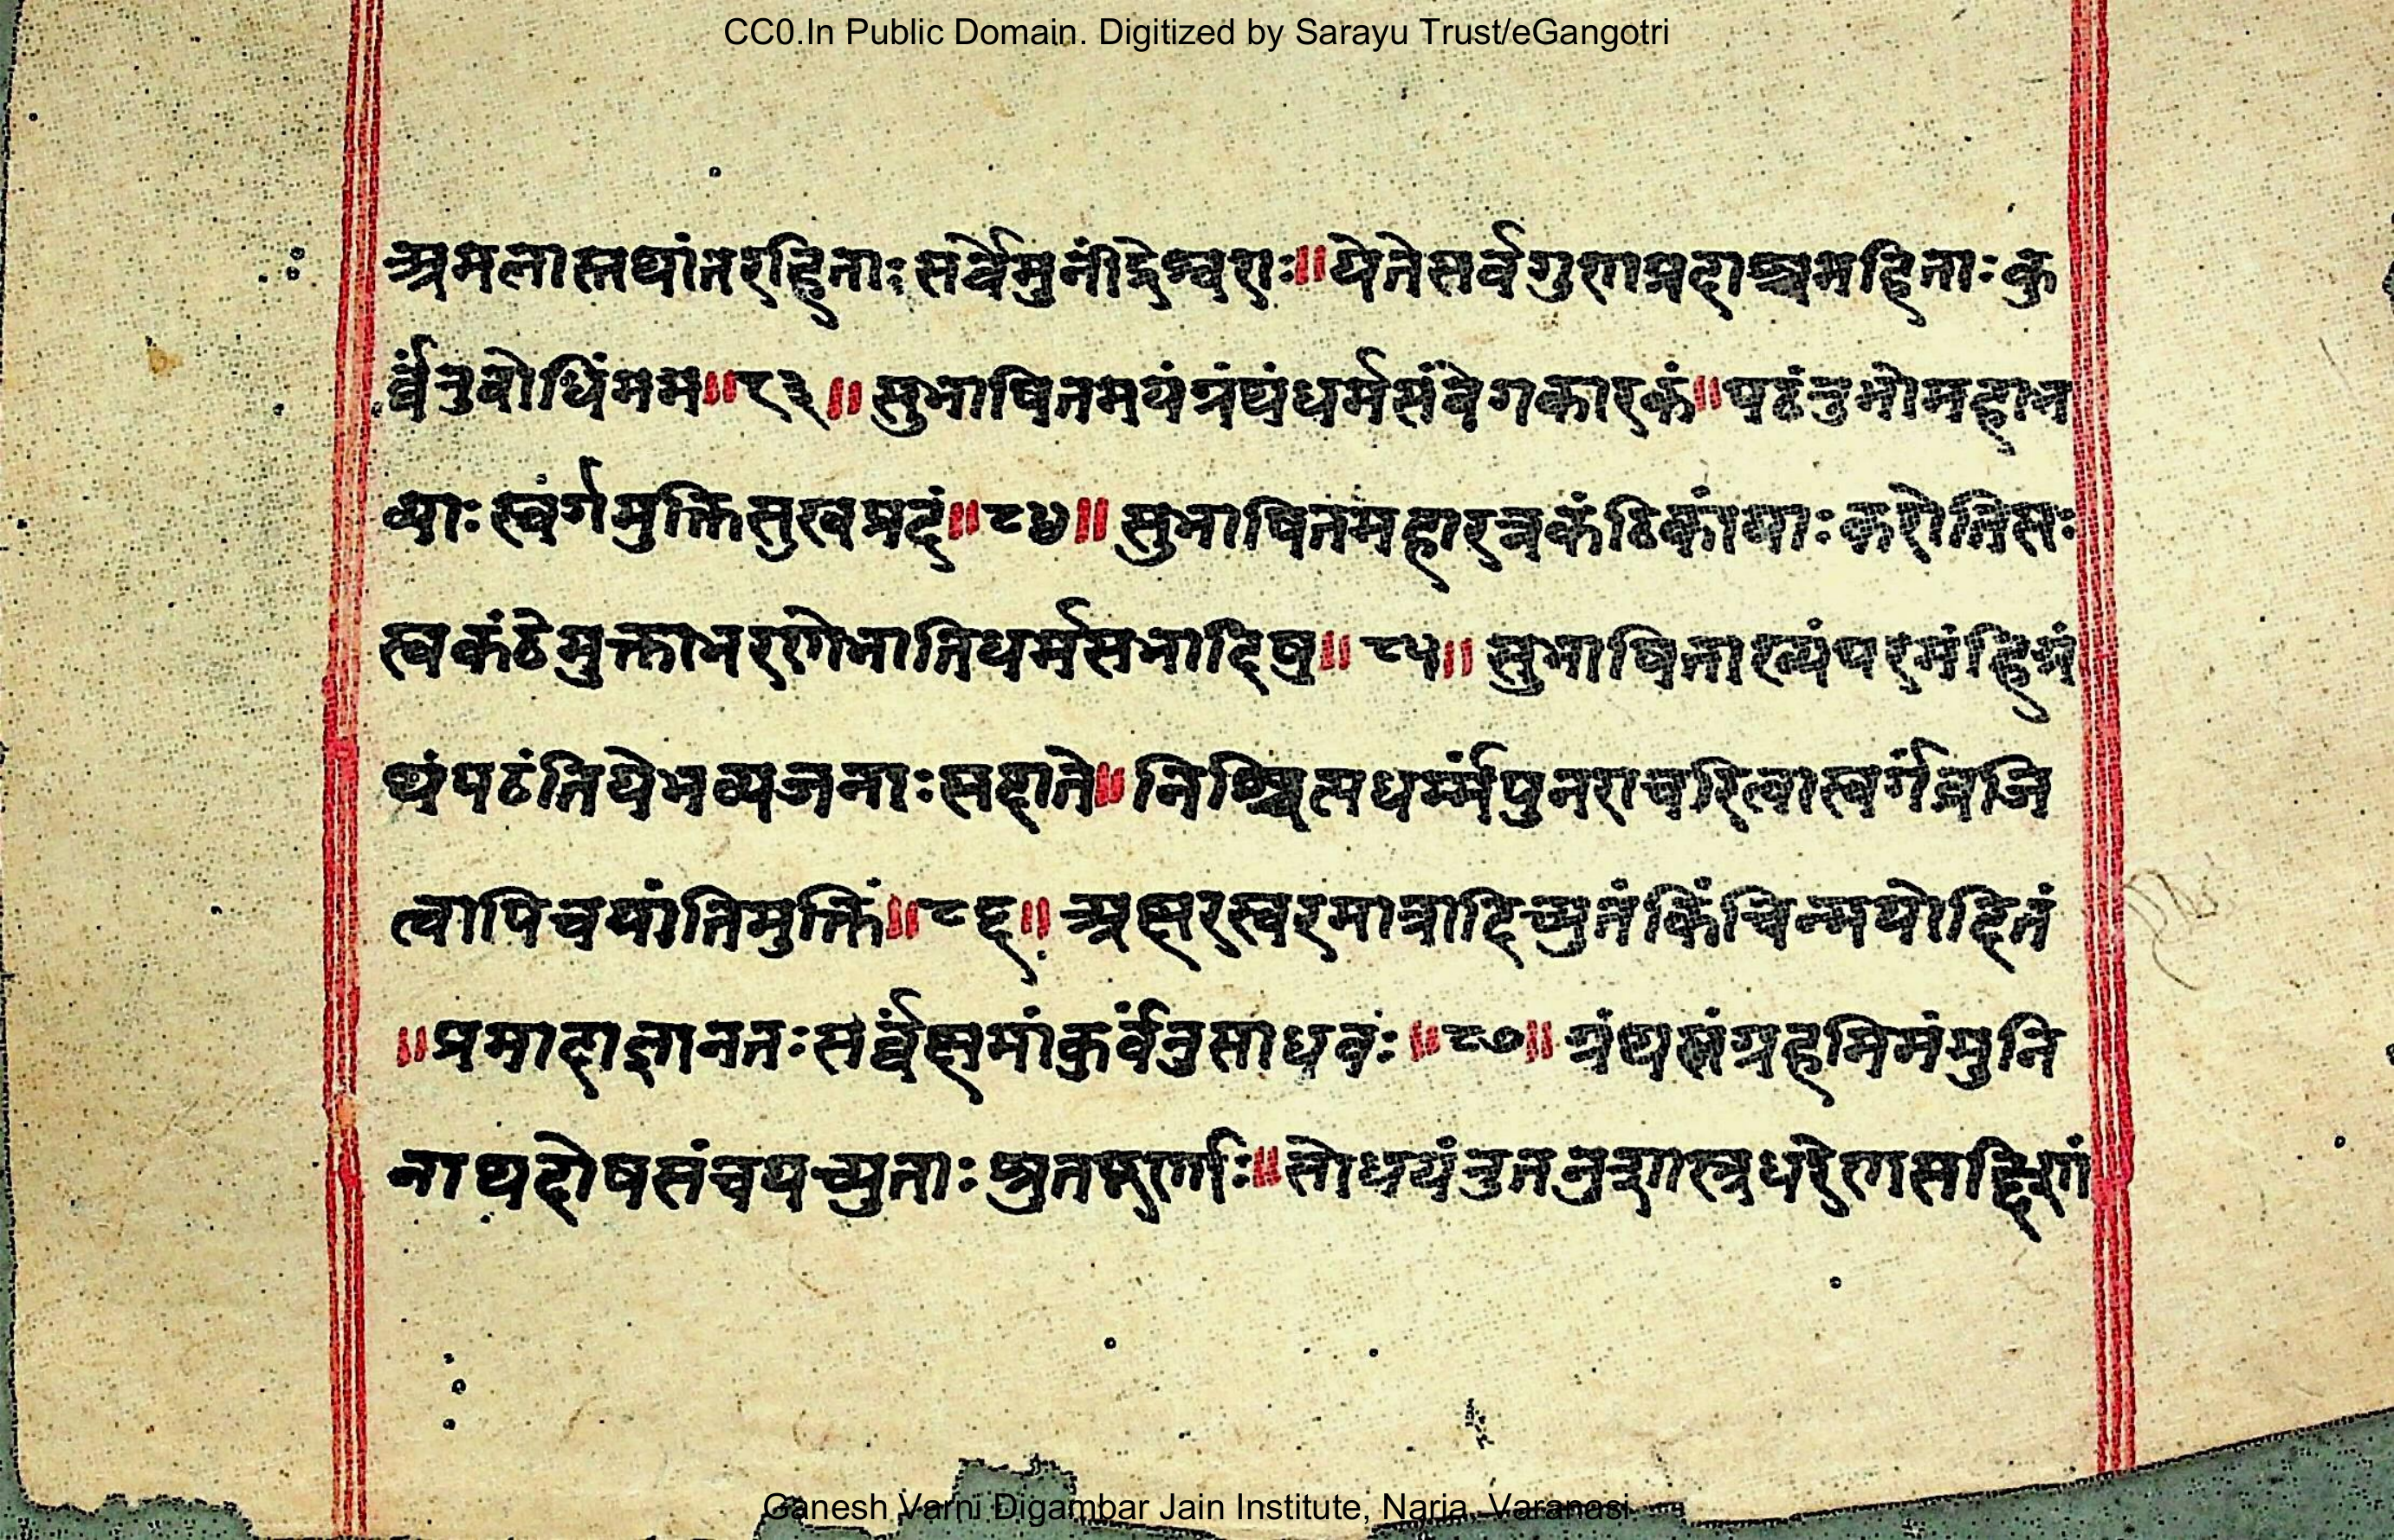 CC0.In Public Domain. Digitized by Sarayu Trust/eGangotri
अमलास्तथांतरहिताः सर्वेमुनींद्रेश्वराः॥येतेसर्वगुणाप्रदाश्चमहिताः कु
र्व्वंतुबोधिंमम॥८३॥ सुभाषितमयंग्रंथंधर्मसंवेगकारकं॥पठंतुभोमहाभ
व्याः स्वंर्गमुक्तिसुखप्रदं॥८४॥ सुभाषितमहारत्नकंठिकांयाः करोतिसः
स्वकंठेमुक्ताभरणेभातिधर्मसभादिषु॥८५॥ सुभाषिताख्यंपरमंहिग्रं
थंपठंतियेभव्यजनाः सदाते॥निश्चित्यधर्म्मंपुनराचरित्वास्वर्गंव्रजि
त्वापिचयांतिमुक्तिं॥८६॥ अक्षरस्वरमात्रादिच्युतंकिंचिन्मयोदितं
॥प्रमादाज्ञानतः सर्व्वंक्षमांकुर्वंतुसाधवंः॥८७॥ ग्रंथसंग्रहमिमंमुनि
नाथदोषसंचयच्युताः श्रुतपूर्णाः॥सोधयंतुतनुशास्त्रधरेण
Ganesh Varni Digambar Jain Institute, Naria, Varanasi